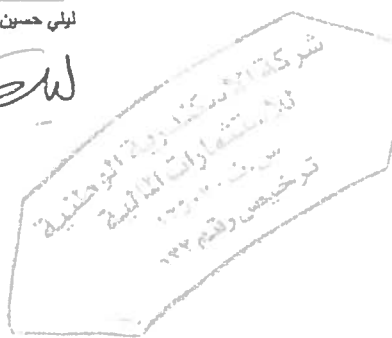 ليلي حسين
شركة الاسكندرية الوطنية
للاستثمارات المالية
س.ت
ترخيص رقم ١٣٢